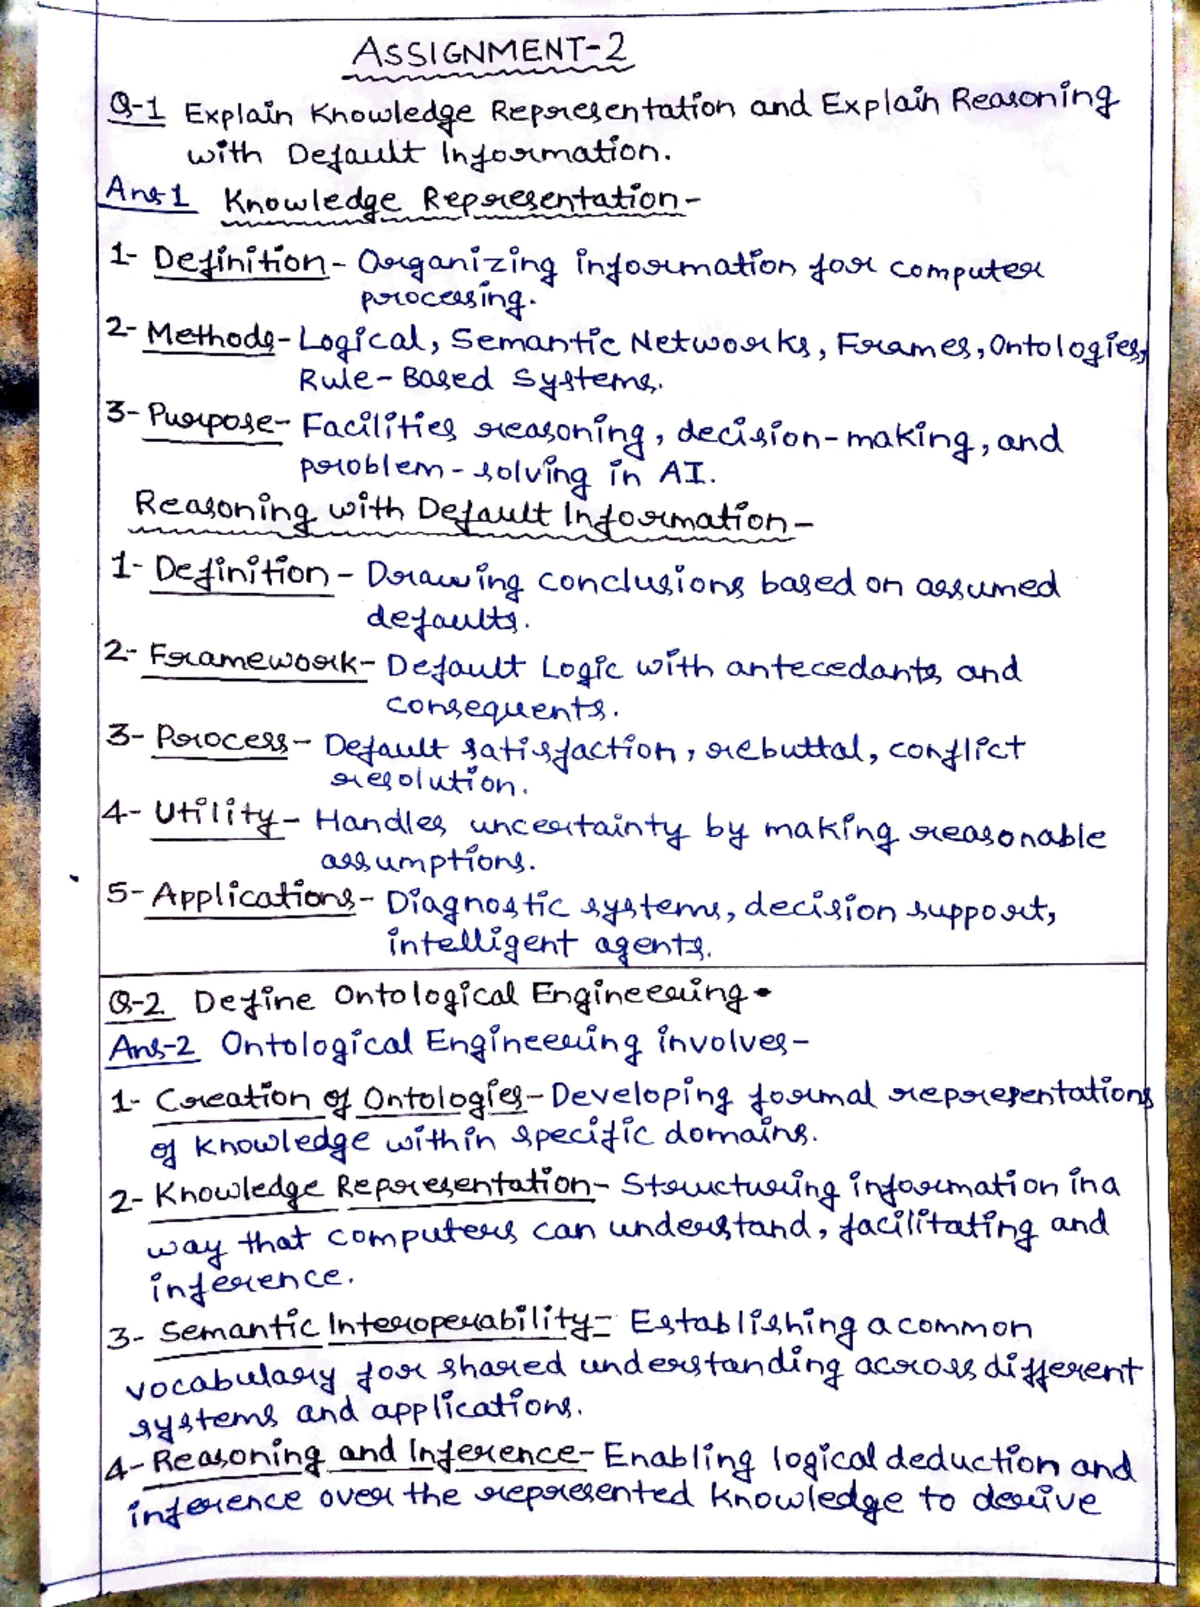 ASSIGNMENT-2
Q-1 Explain Knowledge Representation and Explain Reasoning
with Default Information.
Ans-1 Knowledge Representation-
1- Definition- Organizing information for computer
processing.
2- Methods- Logical, Semantic Networks, Frames, Ontologies,
Rule-Based Systems.
3- Purpose- Facilities reasoning, decision-making, and
problem-solving in AI.
Reasoning with Default Information-
1- Definition- Drawing conclusions based on assumed
defaults.
2- Framework- Default Logic with antecedants and
consequents.
3- Process- Default satisfaction, rebuttal, conflict
resolution.
4- Utility- Handles uncertainty by making reasonable
assumptions.
5- Applications- Diagnostic systems, decision support,
intelligent agents.
Q-2 Define Ontological Engineering.
Ans-2 Ontological Engineering involves-
1- Creation of Ontologies- Developing formal representations
of knowledge within specific domains.
2- Knowledge Representation- Structuring information in a
way that computers can understand, facilitating and
inference.
3- Semantic Interoperability- Establishing a common
vocabulary for shared understanding across different
systems and applications.
4- Reasoning and Inference- Enabling logical deduction and
inference over the represented knowledge to derive